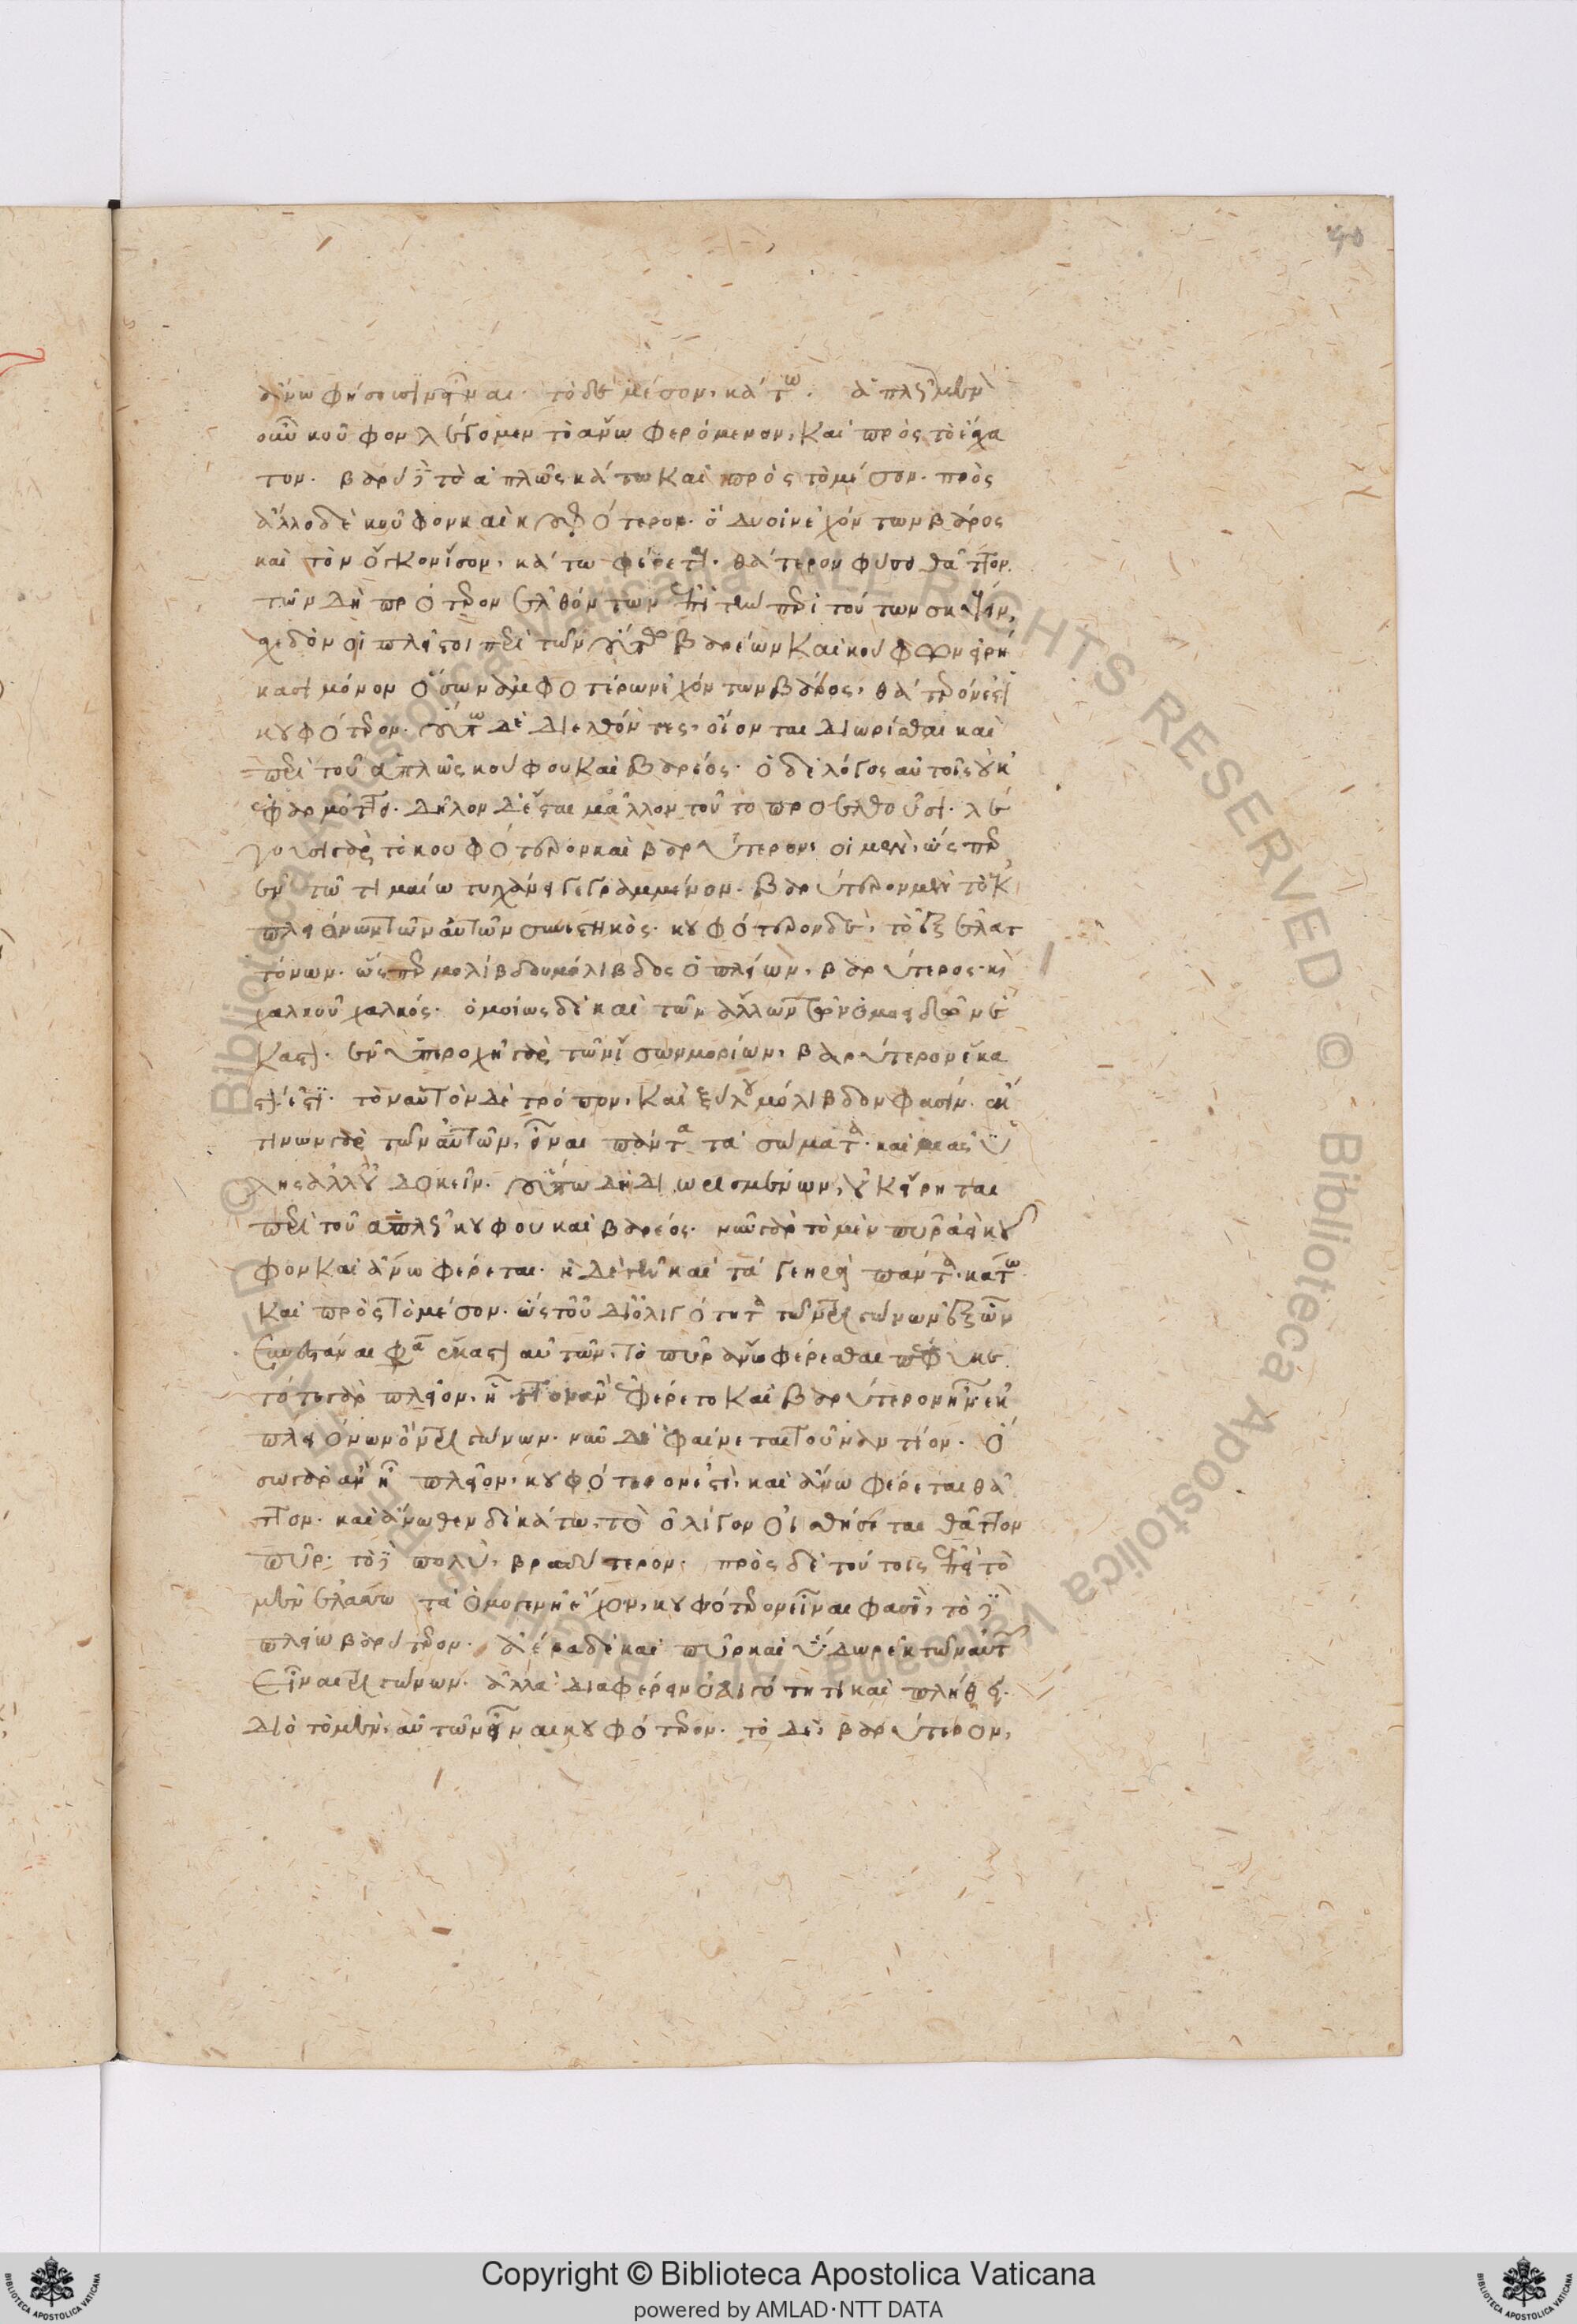 ἄνω φήσουσιν εἶναι· τὸ δὲ μέσον, κάτω. ἁπλῶς μὲν
οὖν κοῦφον λέγομεν τὸ ἄνω φερόμενον, καὶ πρὸς τὸ ἔσχα
τον. βαρὺ δὲ τὸ ἁπλῶς κάτω καὶ πρὸς τὸ μέσον. πρὸς
ἄλλο δὲ κοῦφον καὶ κουφότερον. ὃ δυοῖν ἐχόντων βάρος
καὶ τὸν ὄγκον ἴσον, κάτω φέρεται θάτερον φύσει θᾶττον.
τῶν δὴ πρότερον ἐλθόντων ἐπὶ τὴν περὶ τούτων σκέψιν,
σχεδὸν οἱ πλεῖστοι περὶ τῶν οὕτω βαρέων καὶ κούφων εἰρή
κασι μόνον ὅσων ἀμφοτέρων ἐχόντων βάρος, θάτερόν ἐστι
κουφότερον. οὕτω δὲ διελθόντες, οἴονται διωρίσθαι καὶ
περὶ τοῦ ἁπλῶς κούφου καὶ βαρέος. ὁ δὲ λόγος αὐτοῖς οὐκ
ἐφαρμόττει. δῆλον δ' ἔσται μᾶλλον τοῦτο προελθοῦσι. λέ
γουσι γὰρ τὸ κουφότερον καὶ βαρύτερον, οἱ μὲν, ὥσπερ
ἐν τῷ τιμαίω τυγχάνει γεγραμμένον. βαρύτερον μὲν τὸ ἐκ
πλειόνων τῶν αὐτῶν συνεστηκός. κουφότερον δὲ, τὸ ἐξ ἐλατ
τόνων. ὥσπερ μολίβδου μόλιβδος ὁ πλείων, βαρύτερος. καὶ
χαλκοῦ χαλκός. ὁμοίως δὲ καὶ τῶν ἄλλων τῶν ὁμοειδῶν ἕ
καστον. ἐν ὑπεροχῇ γὰρ τῶν ἴσων μορίων, βαρύτερον ἕκα
στόν ἐστι. τὸν αὐτὸν δὲ τρόπον, καὶ ξύλου μόλιβδον φασίν. ἐκ
τινων γὰρ τῶν αὐτῶν, εἶναι πάντα τὰ σώματα. καὶ μιᾶς ὕ
λης ἀλλ' οὐ δοκεῖν. οὕτω δὴ διωρισμένων, οὐκ εἴρηται
περὶ τοῦ ἁπλῶς κούφου καὶ βαρέος. νῦν γὰρ τὸ μὲν πῦρ ἀεὶ κοῦ
φον καὶ ἄνω φέρεται. ἡ δὲ γῆ καὶ τὰ γεηρὰ πάντα κάτω
καὶ πρὸς τὸ μέσον. ὥστ' οὐ δι' ὀλιγότητα τῶν τριγώνων ἐξ ὧν
συνεστάναι φασὶν ἕκαστον αὐτῶν, τὸ πῦρ ἄνω φέρεσθαι πέφυκε.
τό τε γὰρ πλεῖον, ἧττον ἂν ἐφέρετο καὶ βαρύτερον ἂν ἦν ἐκ
πλειόνων ὂν τριγώνων. νῦν δὲ φαίνεται τοὐναντίον. ὅ
σω γὰρ ἂν ᾖ πλεῖον, κουφότερόν ἐστι, καὶ ἄνω φέρεται θᾶ
ττον. καὶ ἄνωθεν δὲ κάτω, τὸ ὀλίγον οἰσθήσεται θᾶττον
πῦρ. τὸ δὲ πολὺ, βραδύτερον. πρὸς δὲ τούτοις ἐπεὶ τὸ
μὲν ἐλάττω τὰ ὁμογενῆ ἔχον, κουφότερον εἶναι φασὶ, τὸ δὲ
πλείω βαρύτερον. ἀέρα δὲ καὶ πῦρ καὶ ὕδωρ ἐκ τῶν αὐτῶν
εἶναι τριγώνων. ἀλλὰ διαφέρειν ὀλιγότητι καὶ πλήθει.
διὸ τὸ μὲν, αὐτῶν εἶναι κουφότερον. τὸ δὲ, βαρύτερον,
Copyright © Biblioteca Apostolica Vaticana
powered by AMLAD·NTT DATA